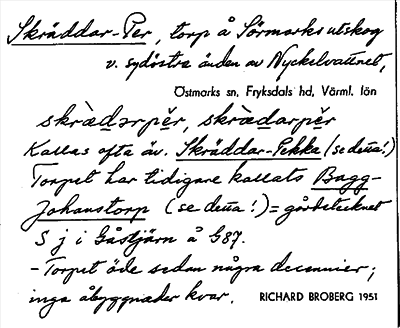 Skräddar-Per, torp å Sörmarks utskog
v. sydöstra änden av Nyckelvattnet,
Östmarks sn, Fryksdals hd, Värml. län
skràdərpĕr, skràdarpĕr
Kallas ofta äv. Skräddar-Pekka (se detta!)
Torpet har tidigare kallats Bagg-
Johanstorp (se detta!) = gårdstecknet
S j i Gåstjärn å G87.
- Torpet öde sedan några decennier;
inga åbyggnader kvar. RICHARD BROBERG 1951